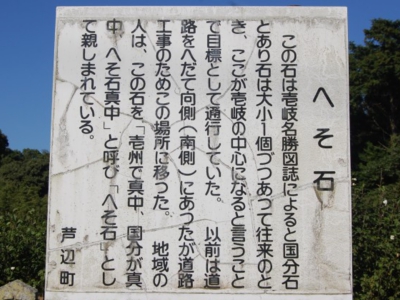 へそ石
この石は壱岐名勝図誌によると国分石
とあり石は大小1個づつあって往来のと
き、ここが壱岐の中心になると言うこと
で目標として通行していた。　以前は道
路をへだて向側(南側)にあったが道路
工事のためこの場所に移った。　地域の
人は、この石を「壱州で真中、国分が真
中、へそ石真中」と呼び「へそ石」とし
て親しまれている。
芦辺町